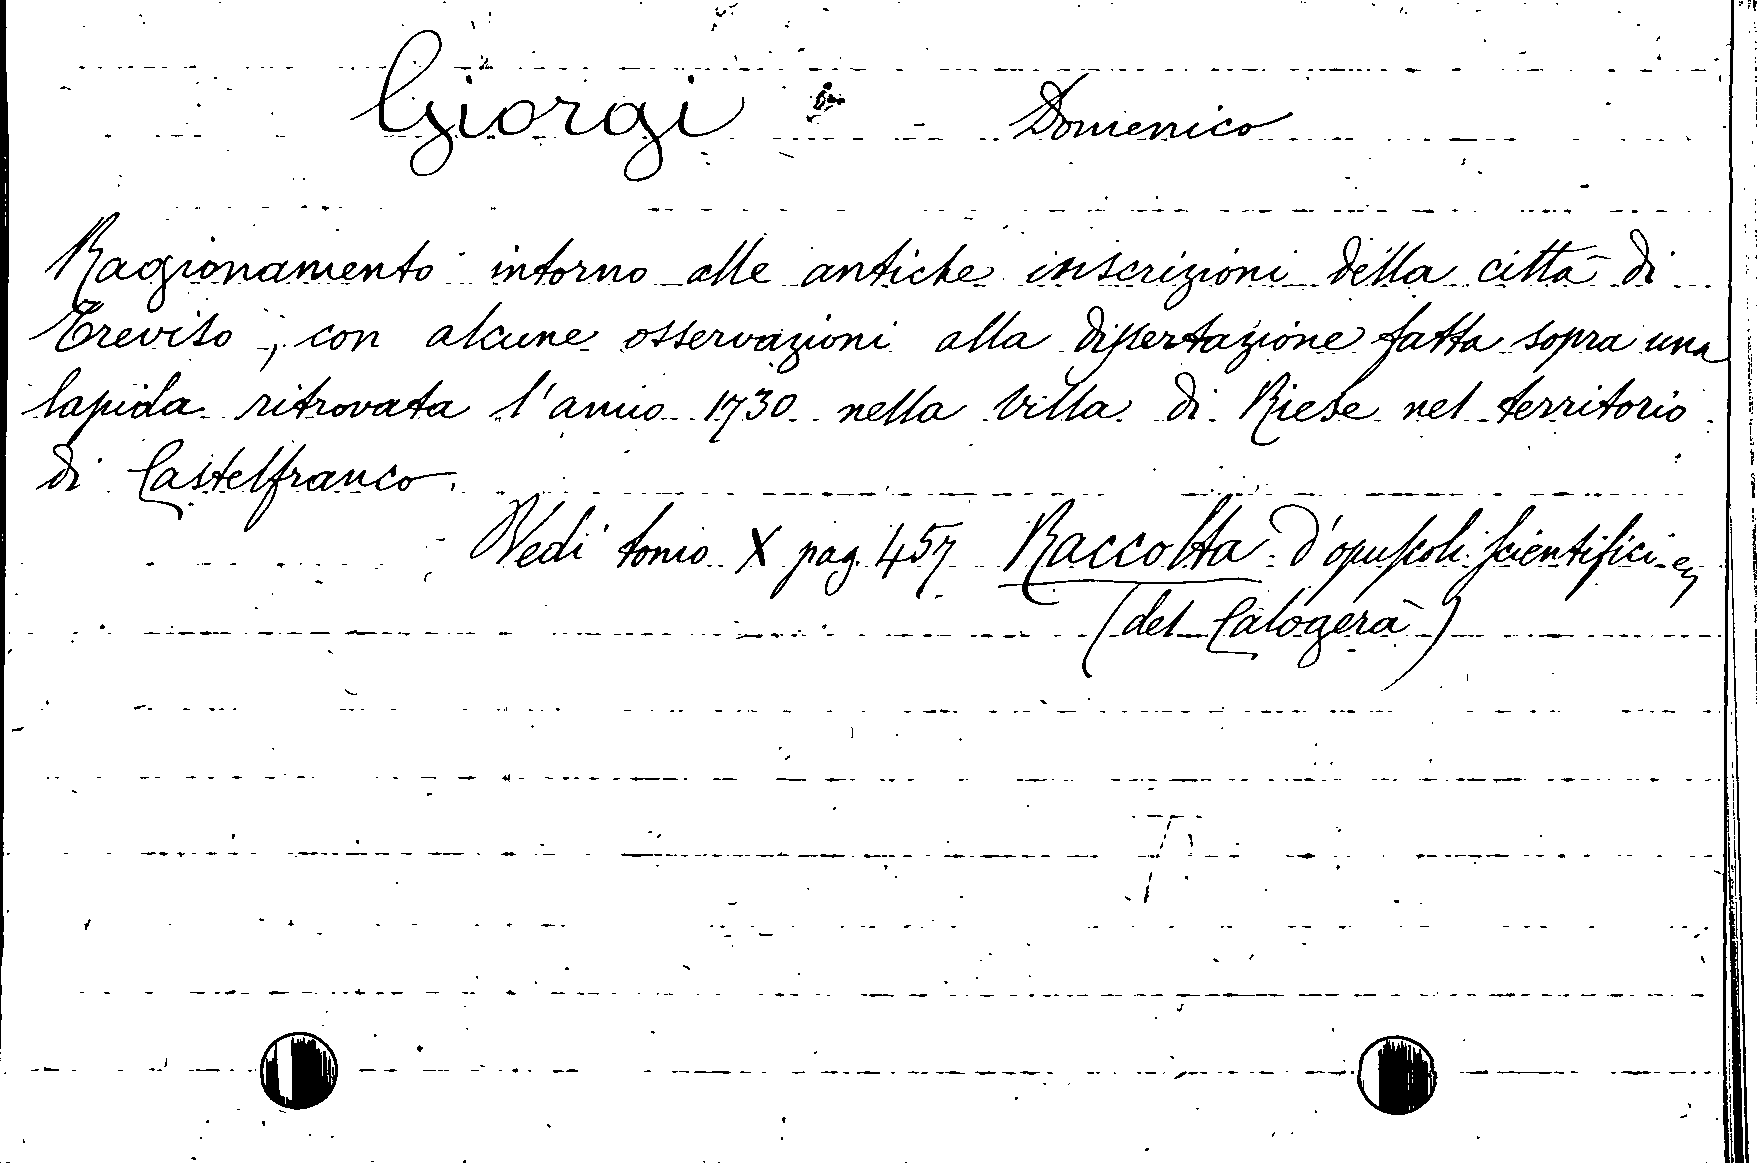 Giorgi Domenico
Ragionamento intorno alle antiche inscrizioni della città di
Treviso, con alcune osservazioni alla dissertazione fatta sopra una
lapida ritrovata l'anno 1730 nella Villa di Riese nel territorio
di Castelfranco.
Vedi tomo X pag. 457 Raccolta d'opuscoli scientifici
(del Calogerà)